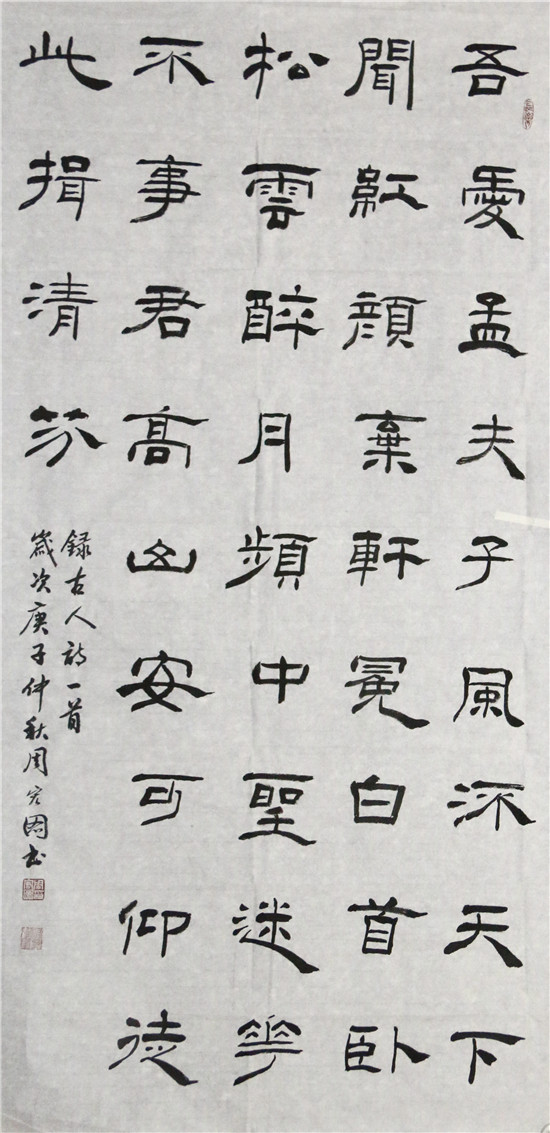 吾愛孟夫子風流天下
聞紅顏棄軒冕白首臥
松雲醉月頻中聖迷花
不事君高山安可仰徒
此揖清芬
錄古人詩一首
歲次庚子仲秋周宏國書